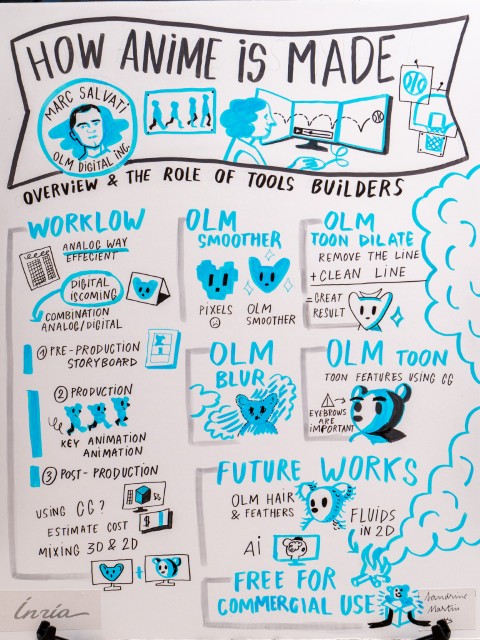 HOW ANIME iS MADE
MARC SALVATi
OLM DIGITAL INC
OVERViEW & THE ROLE OF TOOLS BUiLDERS
WORKLOW
ANALOG WAY
EFFECIENT
DIGITAL
ISCOMING
COMBINATION
ANALOG/DIGITAL
① PRE-PRODUCTION
STORYBOARD
② PRODUCTION
KEY ANIMATION
ANIMATION
③ POST-PRODUCTION
USING CG?
ESTIMATE COST
MIXING 3D & 2D
+
OLM
SMOOTHER
PIXELS
OLM
SMOOTHER
OLM
TOON DILATE
REMOVE THE LINE
+ CLEAN LINE
= GREAT
RESULT
OLM
BLUR
OLM TOON
TOON FEATURES USING CG
EYEBROWS
ARE
iMPORTANT
FUTURE WORKS
OLM HAIR
& FEATHERS
Ai
FLUIDS
IN 2D
FREE FOR
COMMERCIAL USE
Inria
Sandrine
Martin